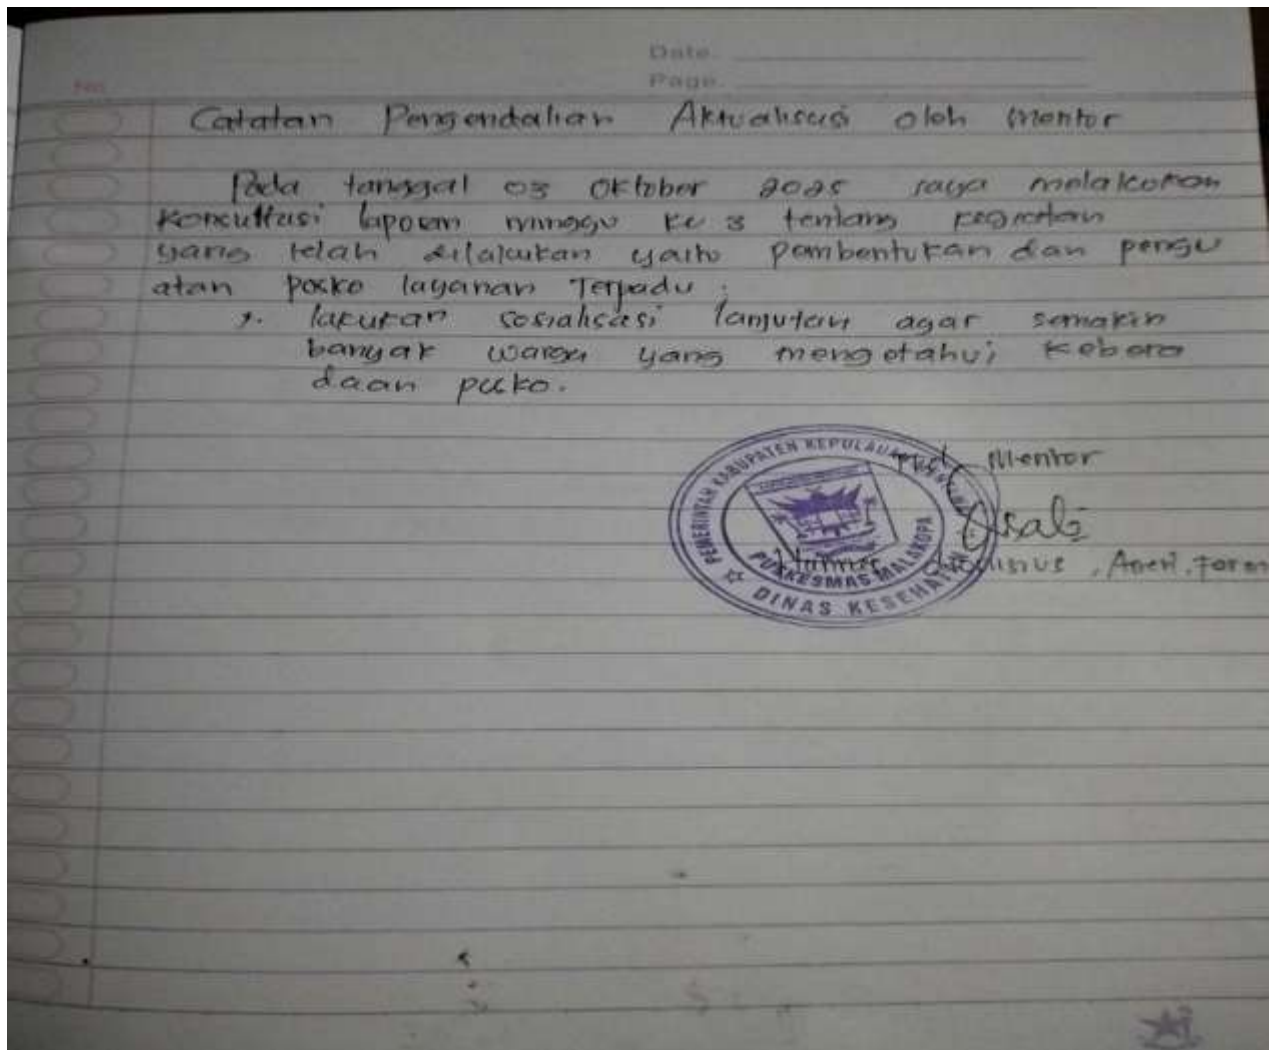 Date.
Page.
No.
Catatan Pengendalian Aktualisasi oleh Mentor
Pada tanggal 03 Oktober 2025 saya melakukan
Konsultasi laporan minggu ke 3 tentang kegiatan
yang telah dilakukan yaitu pembentukan dan pengu
atan posko layanan Terpadu :
1. lakukan sosialisasi lanjutan agar semakin
banyak warga yang mengetahui kebera
daan posko.
Mentor
PEMERINTAH KABUPATEN KEPULAUAN
PUSKESMAS MALAKOPA
DINAS KESEHATAN